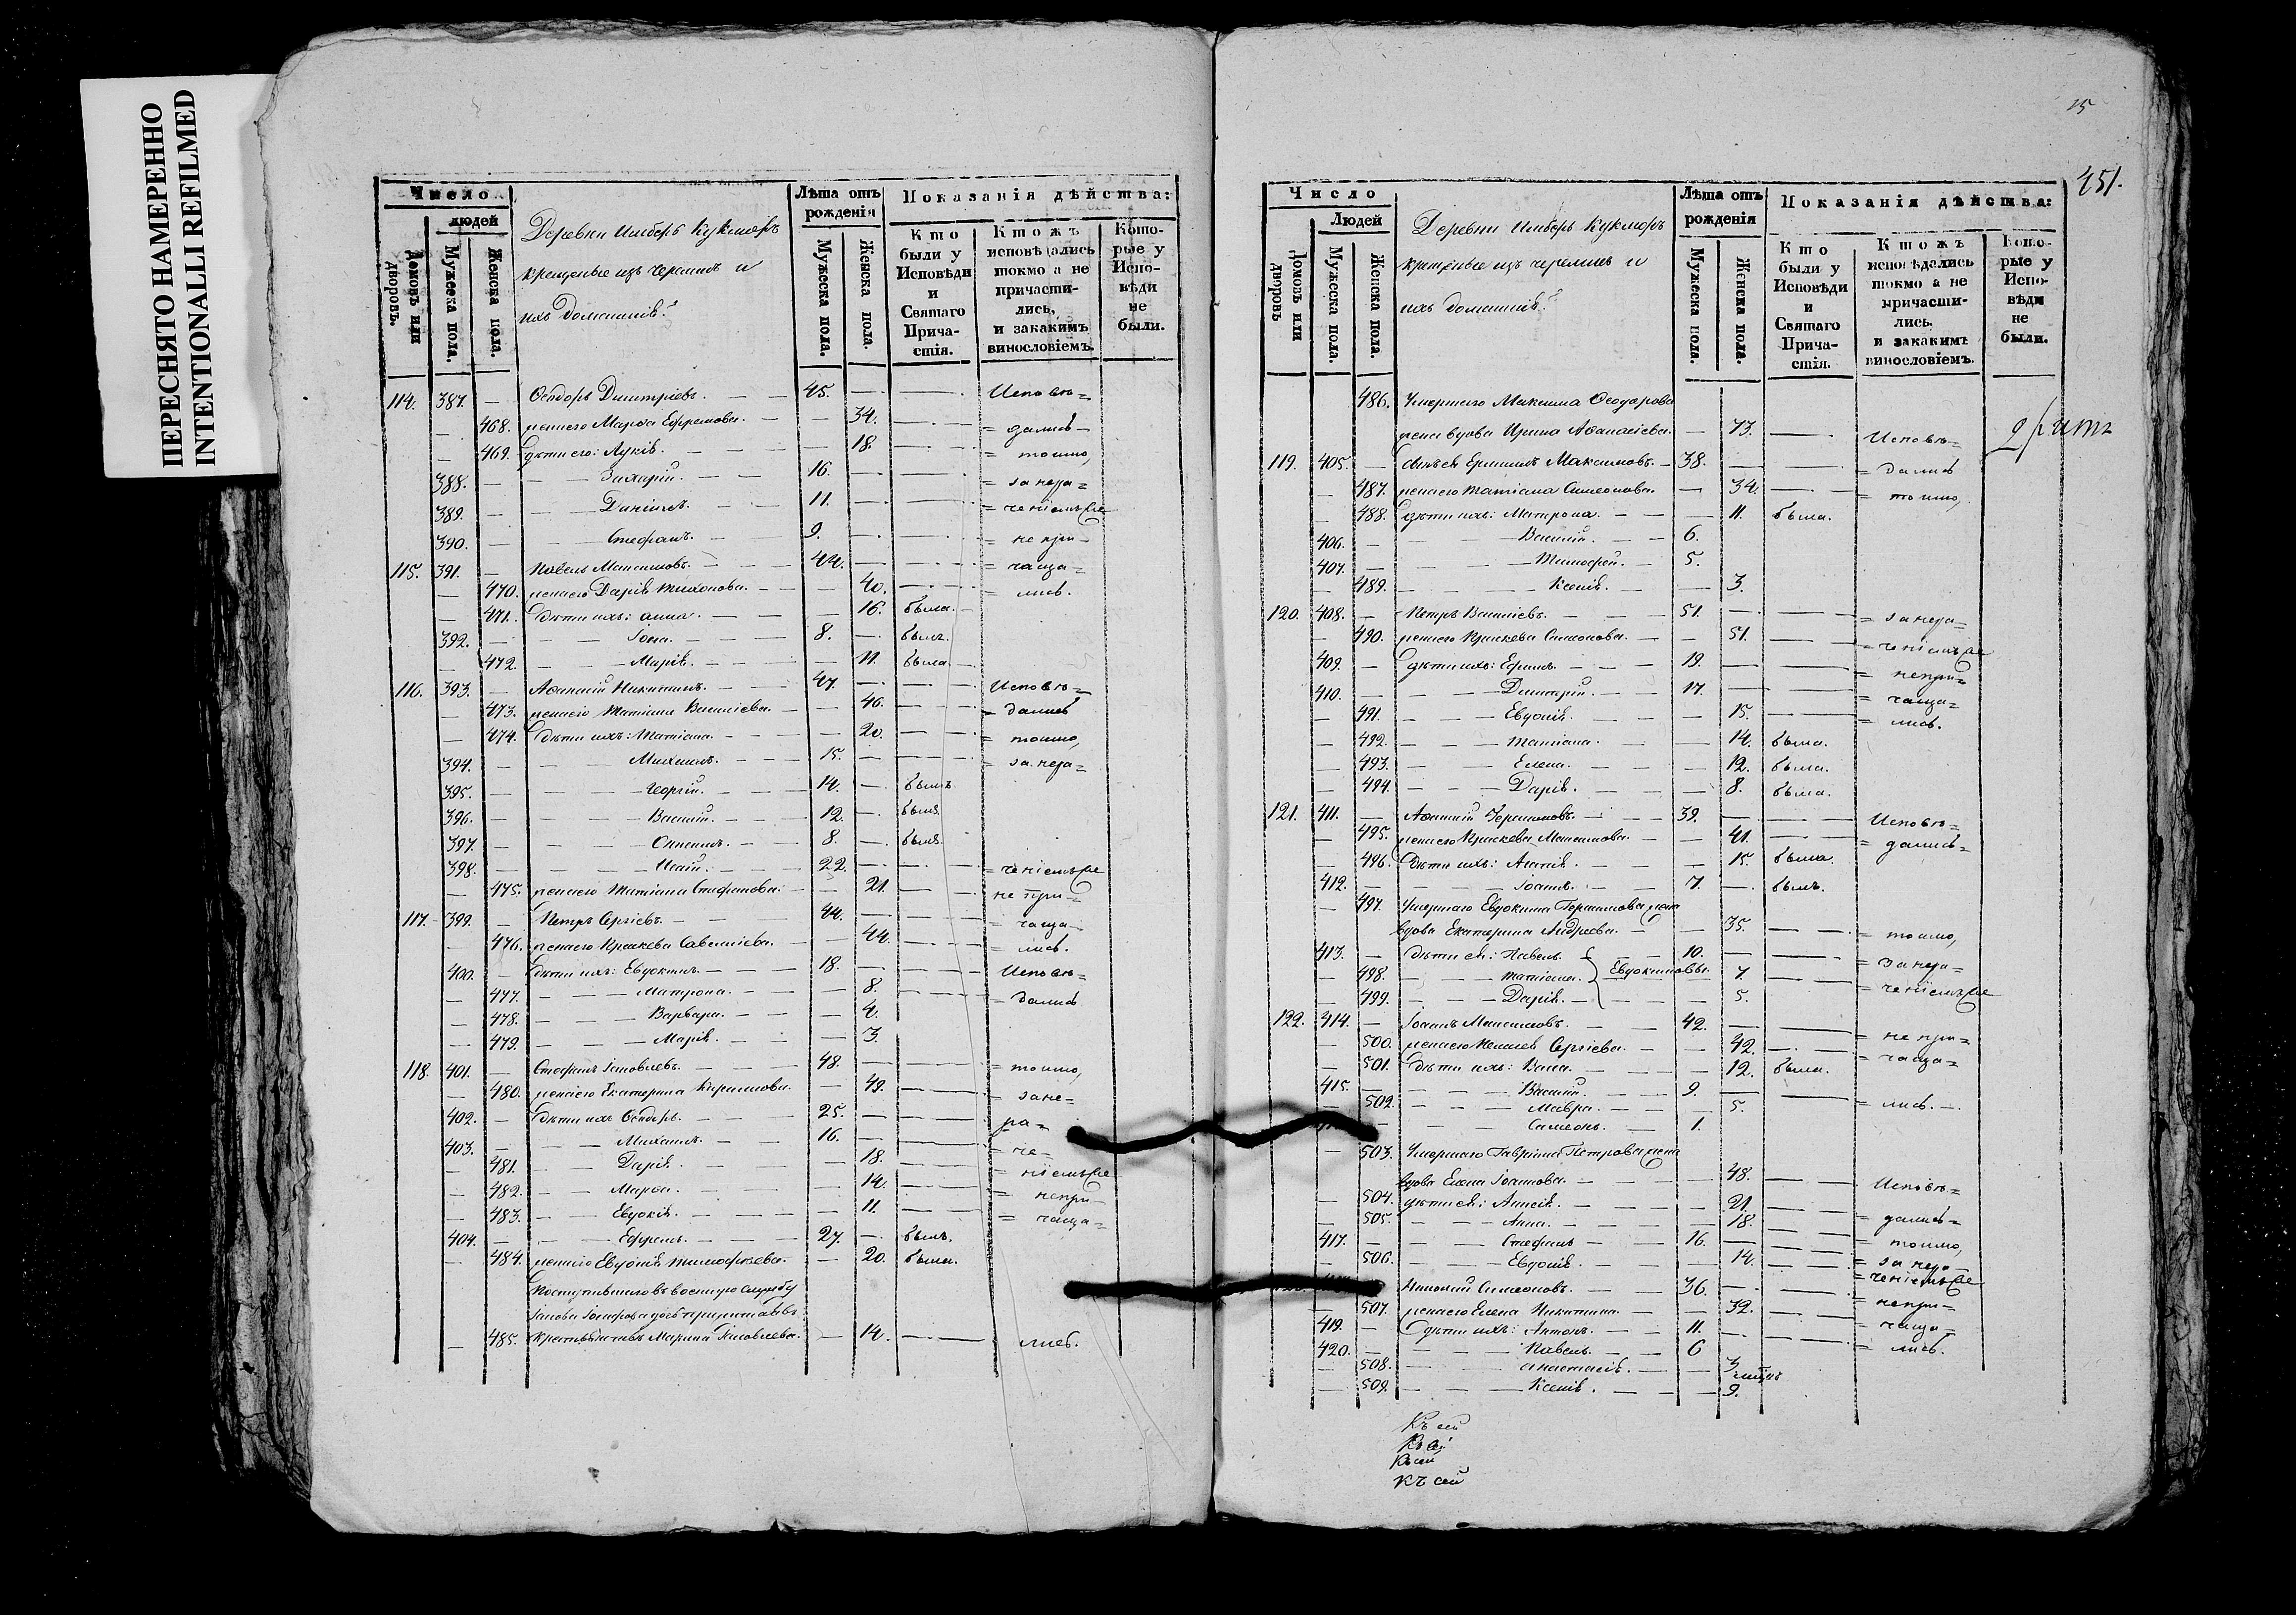 ПЕРЕСНЯТО НАМЕРЕННО
INTENTIONALLI REFILMED
Число
людей
Домовъ или дворовъ.
Мужеска пола.
Женска пола.
Деревни Имберь Кукморъ
крещеные изъ черемисъ и
ихъ домашнiѣ.
Лѣта отъ рожденiя
Мужеска пола.
Женска пола.
Показанiя дѣйства:
Кто были у Исповѣди и Святаго Прича-стiя.
Ктожъ исповѣдались токмо а не причасти-лись, и закакимъ винословiемъ.
Кото-рые у Испо-вѣди не были.
114. 387. — Ѳеодоръ Дмитрiевъ. 45. Исповѣ=
468. жена его Марѳа Ефремова. 34. = дались
469. Дѣти его: Лукiя. 18. = токмо,
388. Захарiй. 16. = за нера=
389. Данiилъ. 11. = ченiемъ бе
390. Стефанъ. 9. = не при=
115. 391. Павелъ Максимовъ. 44. = чаща=
470. жена его Дарiя Тихонова. 40. = лись.
471. Дѣти ихъ: Анна. 16. была.
392. Iона. 8. былъ.
472. Марiя. 11. была.
116. 393. Аѳанасiй Никитинъ. 47. Исповѣ=
473. жена его Татiана Василiева. 46. = дались
474. Дѣти ихъ: Татiана. 20. = токмо,
394. Михаилъ. 15. = за нера=
395. Георгiй. 14. былъ
396. Василiй. 12. былъ
397. Онисимъ. 8. былъ.
398. Исаiй. 22. = ченiемъ бе
475. жена его Татiана Стефанова. 21. не при=
117. 399. Петръ Сергiевъ. 44. = чаща=
476. жена его Праскева Савелiева. 44. = лись.
400. Дѣти ихъ: Евдокимъ. 18. Исповѣ=
477. Матрона. 8. = дались
478. Варвара. 4.
479. Марiя. 3.
118. 401. Стефанъ Iаковлевъ. 48. = токмо,
480. жена его Екатерина Кирилова. 49. = за не=
402. Дѣти ихъ Ѳеодоръ. 25. ра=
403. Михаилъ. 16. = че=
481. Дарiя. 18. = нiемъ бе
482. Марѳа. 14. = непри=
483. Евдокiя. 11. = чаща=
404. Ефремъ. 27. былъ.
484. жена его Евдокiя Тимофѣева. 20. была.
Поступившаго въ военную службу
485. Марина Iаковлева. 14. лись.
15
451.
Число
Людей
Домовъ или дворовъ
Мужеска пола.
Женска пола.
Деревни Имберь Кукморъ
крещеные изъ черемисъ и
ихъ домашнiѣ.
Лѣта отъ рожденiя
Мужеска пола.
Женска пола.
Показанiя дѣйства:
Кто были у Исповѣди и Святаго Прича-стiя.
Ктожъ исповѣдались токмо а не причасти-лись, и закакимъ винословiемъ.
Кото-рые у Испо-вѣди не были.
486. Умершаго Максима Ѳеодорова
жена вдова Ирина Аѳанасiева. 73. Исповѣ=
119. 405. сынъ ея Ермилъ Максимовъ. 38. = дались
487. жена его Татiана Симеонова. 34. = токмо,
488. Дѣти ихъ: Матрона. 11. была.
406. Василiй. 6.
407. Тимофей. 5.
489. Ксенiя. 3.
120. 408. Петръ Василiевъ. 51. = за нера=
490. жена его Праскева Симеонова. 51. = ченiемъ бе
409. Дѣти ихъ: Ефимъ. 19. непри=
410. Дмитрiй. 17. = чаща=
491. Евдокiя. 15. = лись.
492. Татiана. 14. была.
493. Елена. 12. была.
494. Дарiя. 8. была.
121. 411. Аѳанасiй Герасимовъ. 39. Исповѣ=
495. жена его Праскева Максимова. 41. = дались=
496. Дѣти ихъ: Агапiя. 15. была.
412. Iоаннъ. 7. былъ.
497. Умершаго Евдокима Герасимова жена
вдова Екатерина Андреева. 35. = токмо,
413. Дѣти ея: Павелъ. 10. = За нера=
498. Татiана. Евдокимовы. 7. = ченiемъ бе
499. Дарiя. 5.
122. 414. Iоаннъ Максимовъ. 42. = не при=
500. жена его Сергiева. 42. = чаща=
501. Дѣти ихъ: 12. была.
415. Василiй. 9.
502. Мавра. 5. = лись.
Симеонъ. 1.
503. Умершаго Гаврiила Петрова жена
вдова Елена Iоаннова. 48. Исповѣ=
504. Дѣти ея: Анисiя. 21. = дались=
505. Анна. 18.
417. Стефанъ 16. = токмо,
506. Евдокiя. 14. = за нера=
Симеоновъ. 36. = ченiемъ бе
507. жена его Елена Никитина. 32. непри=
419. Дѣти ихъ: Антонъ. 11. = чаща=
420. Павелъ. 6 = лись.
508. Анастасiя. 3
509. Ксенiя. 9.
Къ сей
Къ сей
Къ сей
Къ сей